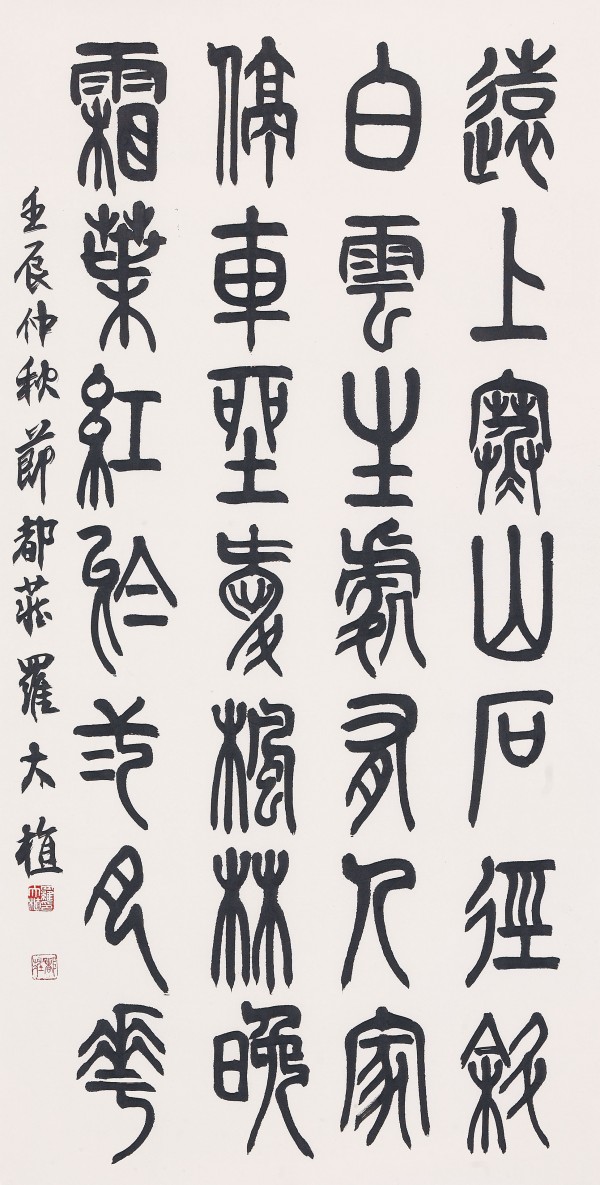 遠上寒山石徑斜
白雲生處有人家
停車坐愛楓林晚
霜葉紅於弍月花
壬辰仲秋節都莊羅大植